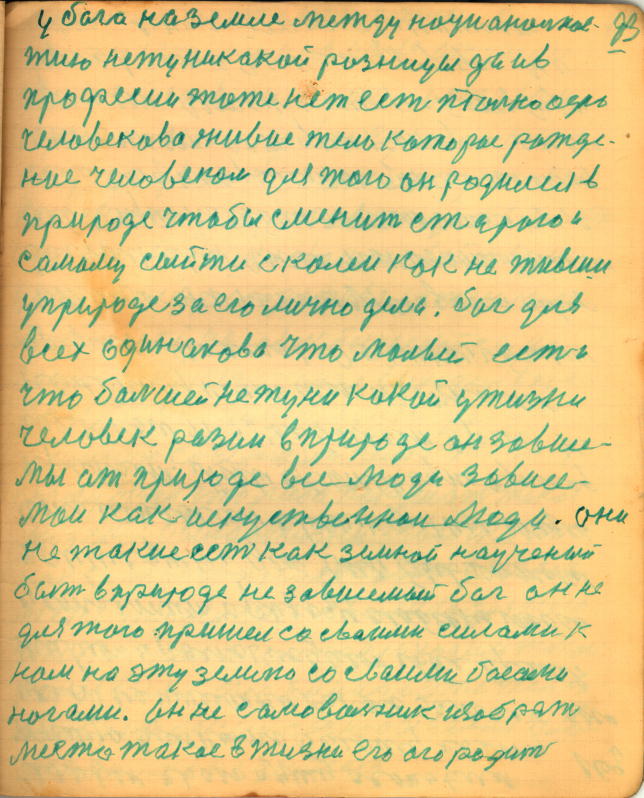 у бога на земле между ночи
тию нету никакой розницы да и в
професии тоже нет ест
человекова живие тело каторае рожде-
ное человеком для того он родился в
природе чтобы сменит старога и
самому сыйти с колеи как не живши
у природе за его лично дела. бог для
всех одинакова что малый ест а
что балшей нету никакой у жизни
человек разии в природе он завис-
мы от природе все люди завис-
мои как искуственнои люди. они
не такие ест как земной научений
быт в природе не зависемый бог он не
для того пришел со своими силами к
ном на эту землю со своими босами
ногами. он не самоважник изобрат
место такое в жизни его огородит